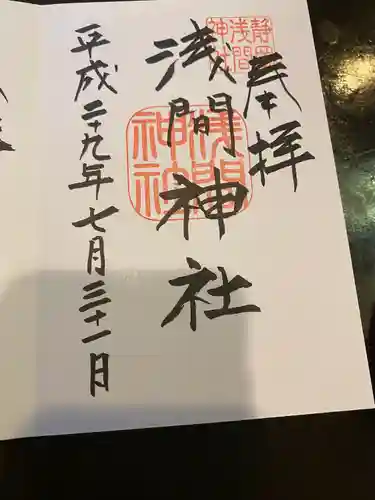 奉拝
静岡浅間神社
浅間神社
浅間神社
平成二十九年七月三十一日